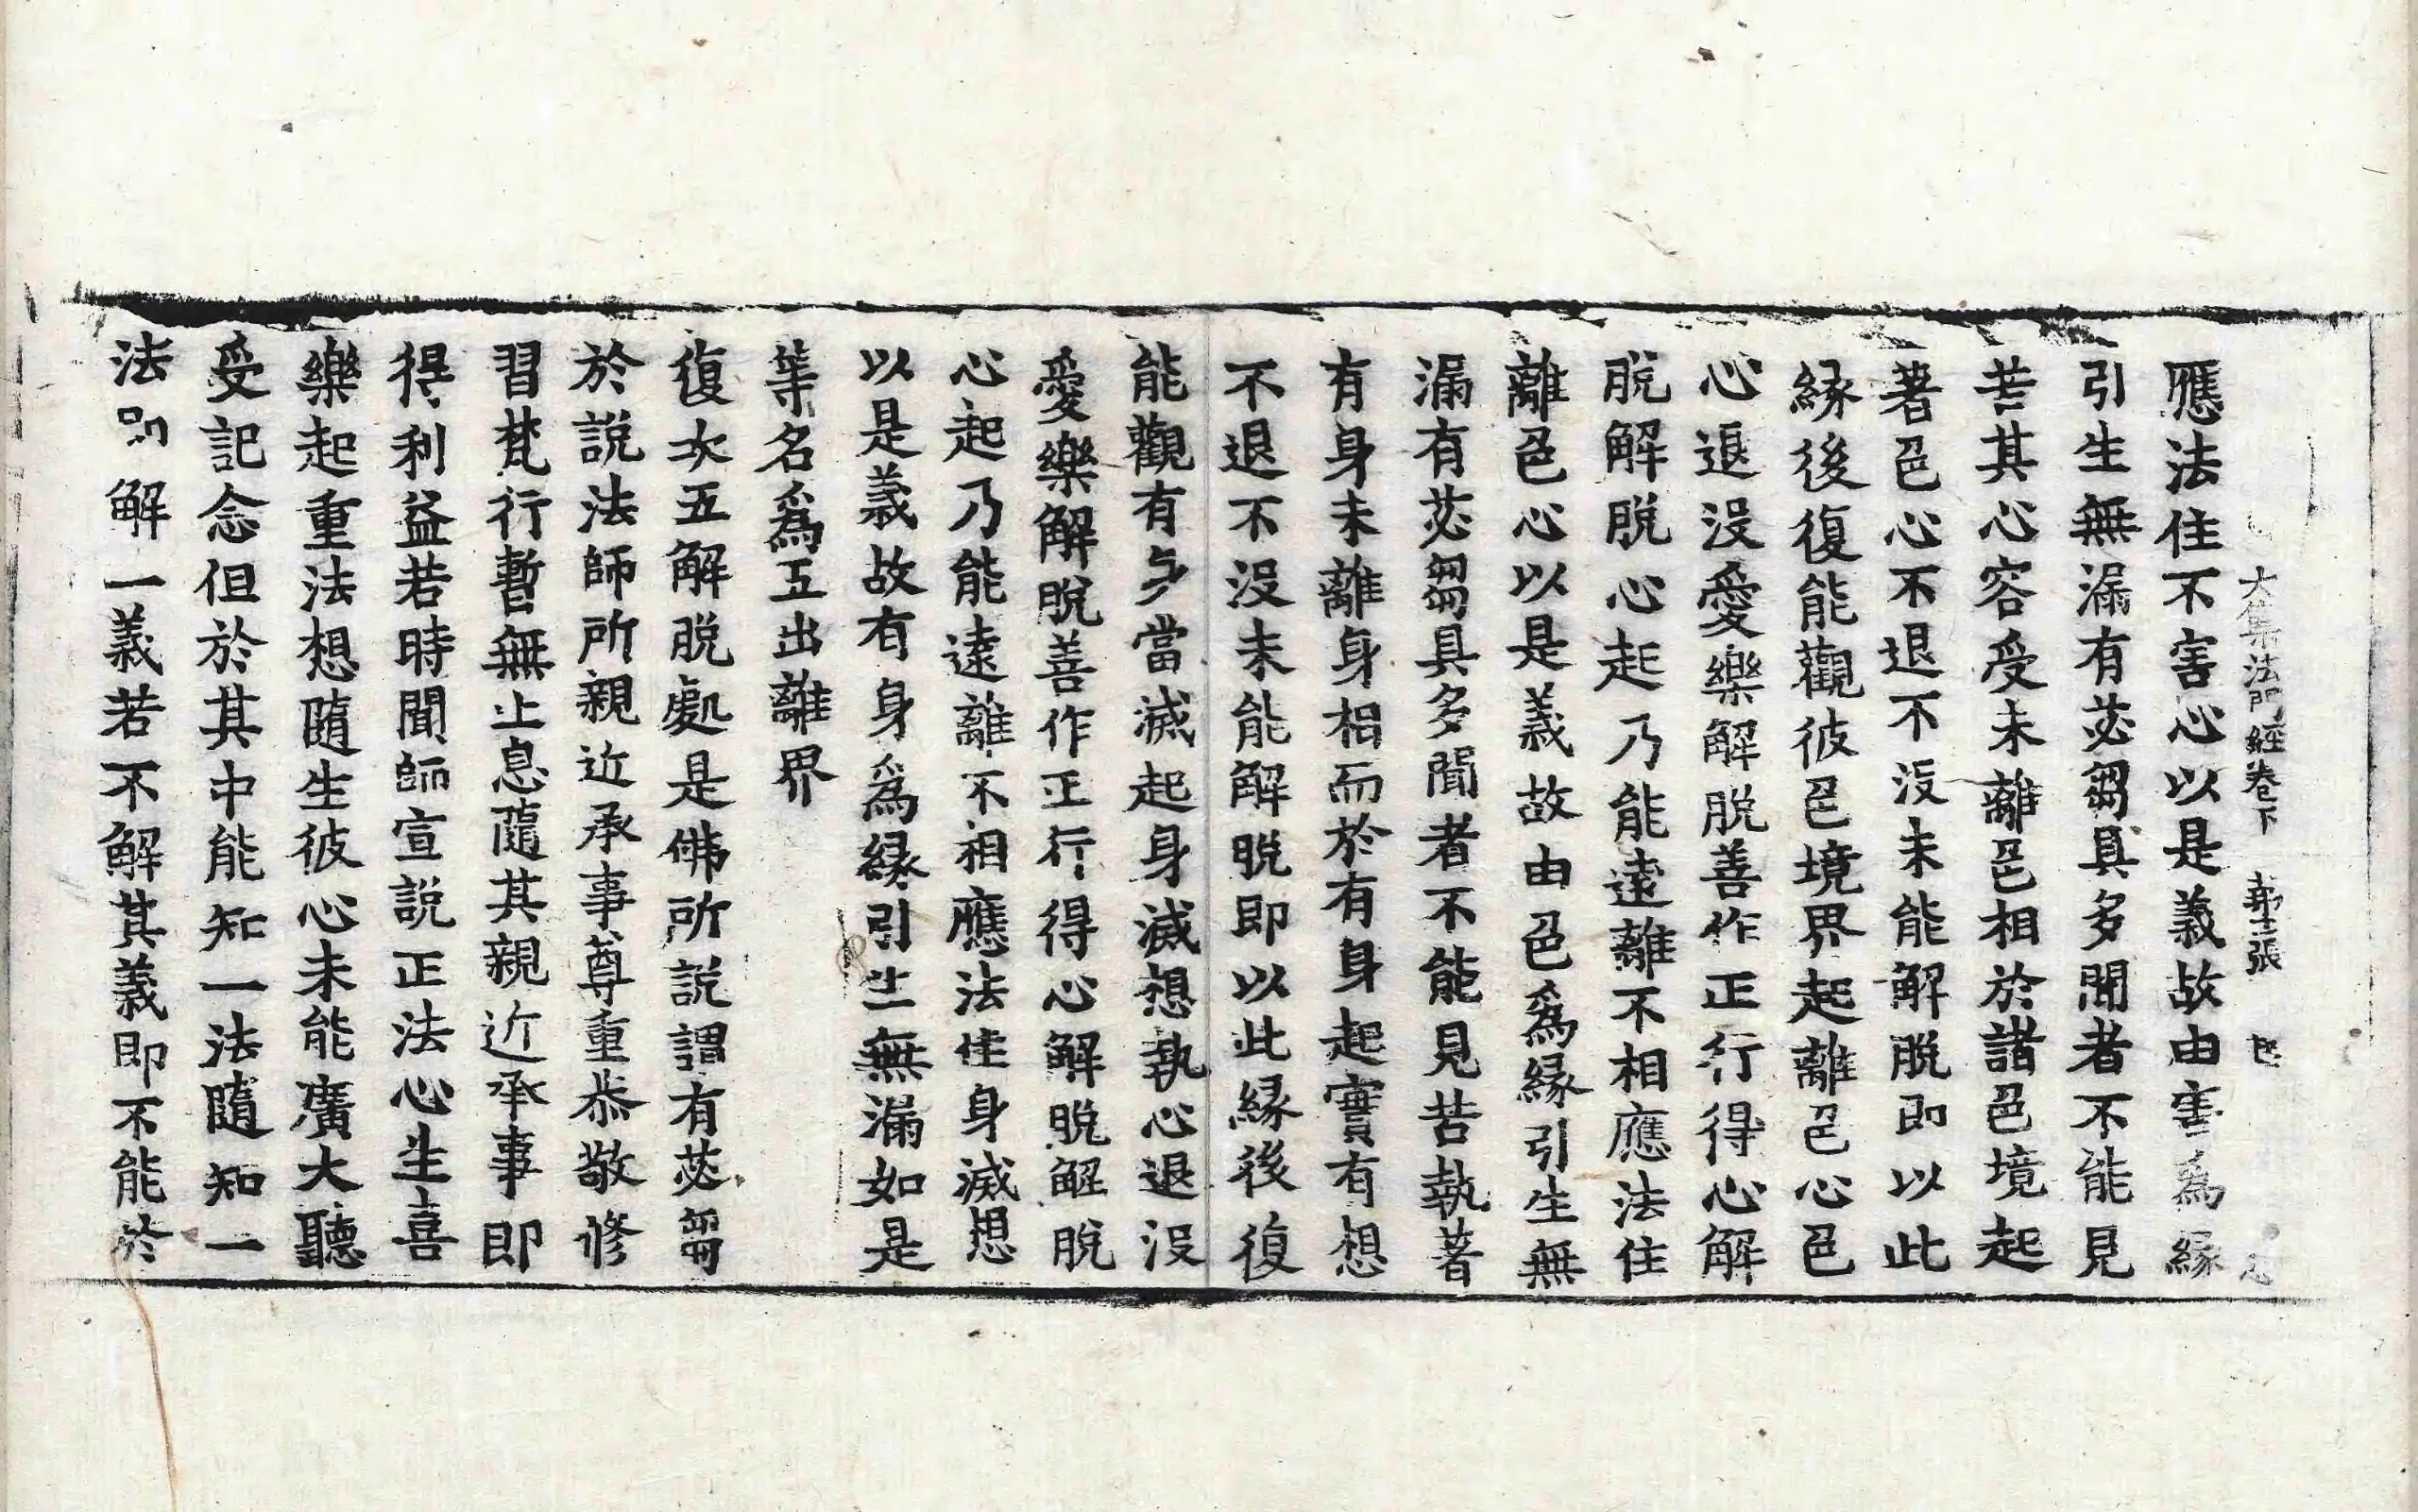 應法住不害心以是義故由害為縁
大集法門經卷下 張
引生無漏有苾芻具多聞者不能見
苦其心容受未離色相於諸色境起
著色心不退不没未能解脱即以此
縁後復能觀彼色境界起離色心色
心退没愛樂解脱善作正行得心解
脱解脱心起乃能遠離不相應法住
離色心以是義故由色為縁引生無
漏有苾芻具多聞者不能見苦執著
有身未離身相而於有身起實有想
不退不没未能解脱即以此縁後復
能觀有身當滅起身滅想執心退没
愛樂解脱善作正行得心解脱解脱
心起乃能遠離不相應法住身滅想
以是義故有身為縁引生無漏如是
等名為五出離界
復次五解脱處是佛所説謂有苾芻
於説法師所親近承事尊重恭敬修
習梵行暫無止息隨其親近承事即
得利益若時聞師宣説正法心生喜
樂起重法想隨生彼心未能廣大聽
受記念但於其中能知一法隨知一
法即解一義若不解其義即不能於